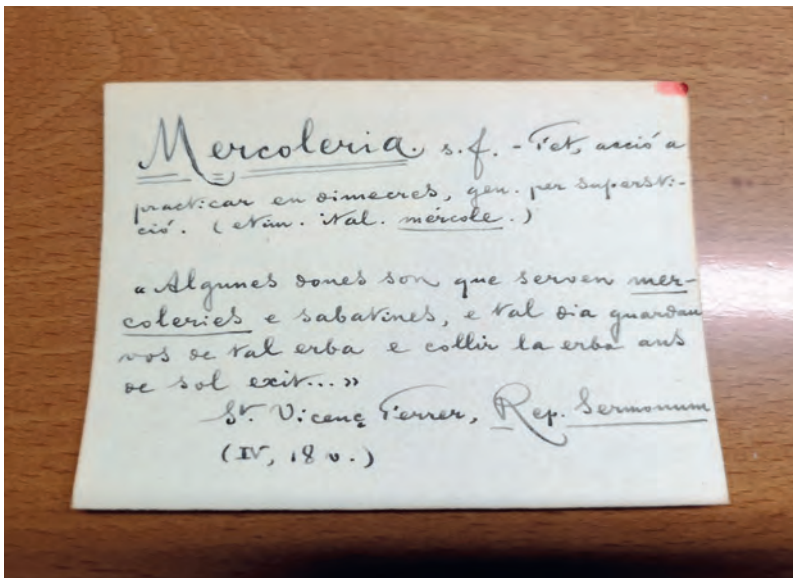 Mercoleria. s.f. - Fet, acció a
practicar en dimecres, gen. per supersti-
ció. (etim. ital. mércole.)
«Algunes dones son que serven mer-
coleries e sabatines, e tal dia guardau
vos de tal erba e collir la erba ans
de sol exit...»
St. Vicenç Ferrer, Rep. Sermonum
(IV, 18 v.)